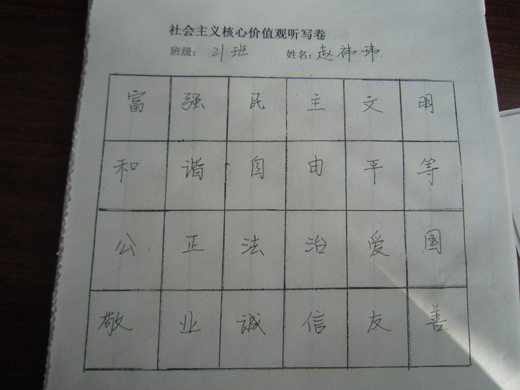 社会主义核心价值观听写卷
班级: 21班 姓名: 赵祎玮
富 强 民 主 文 明
和 谐 自 由 平 等
公 正 法 治 爱 国
敬 业 诚 信 友 善